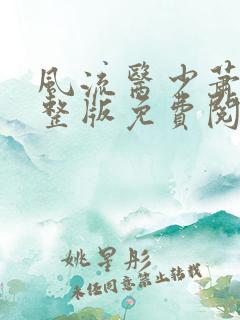 風流醫少蕭
整版免費閱
姚星彤
未經同意禁止轉載